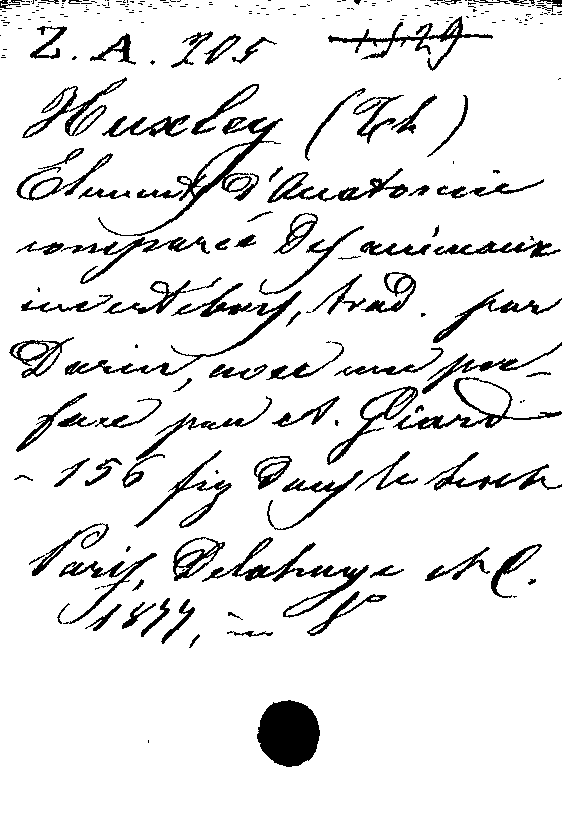 Z. A. 205 1529
Huxley (Th)
Elements d'Anatomie
comparée des animaux
invertébrés, trad. par
Darin, avec une pré-
face par A. Giard
- 156 fig dans le texte
Paris, Delahaye et C.
1877, in 8°